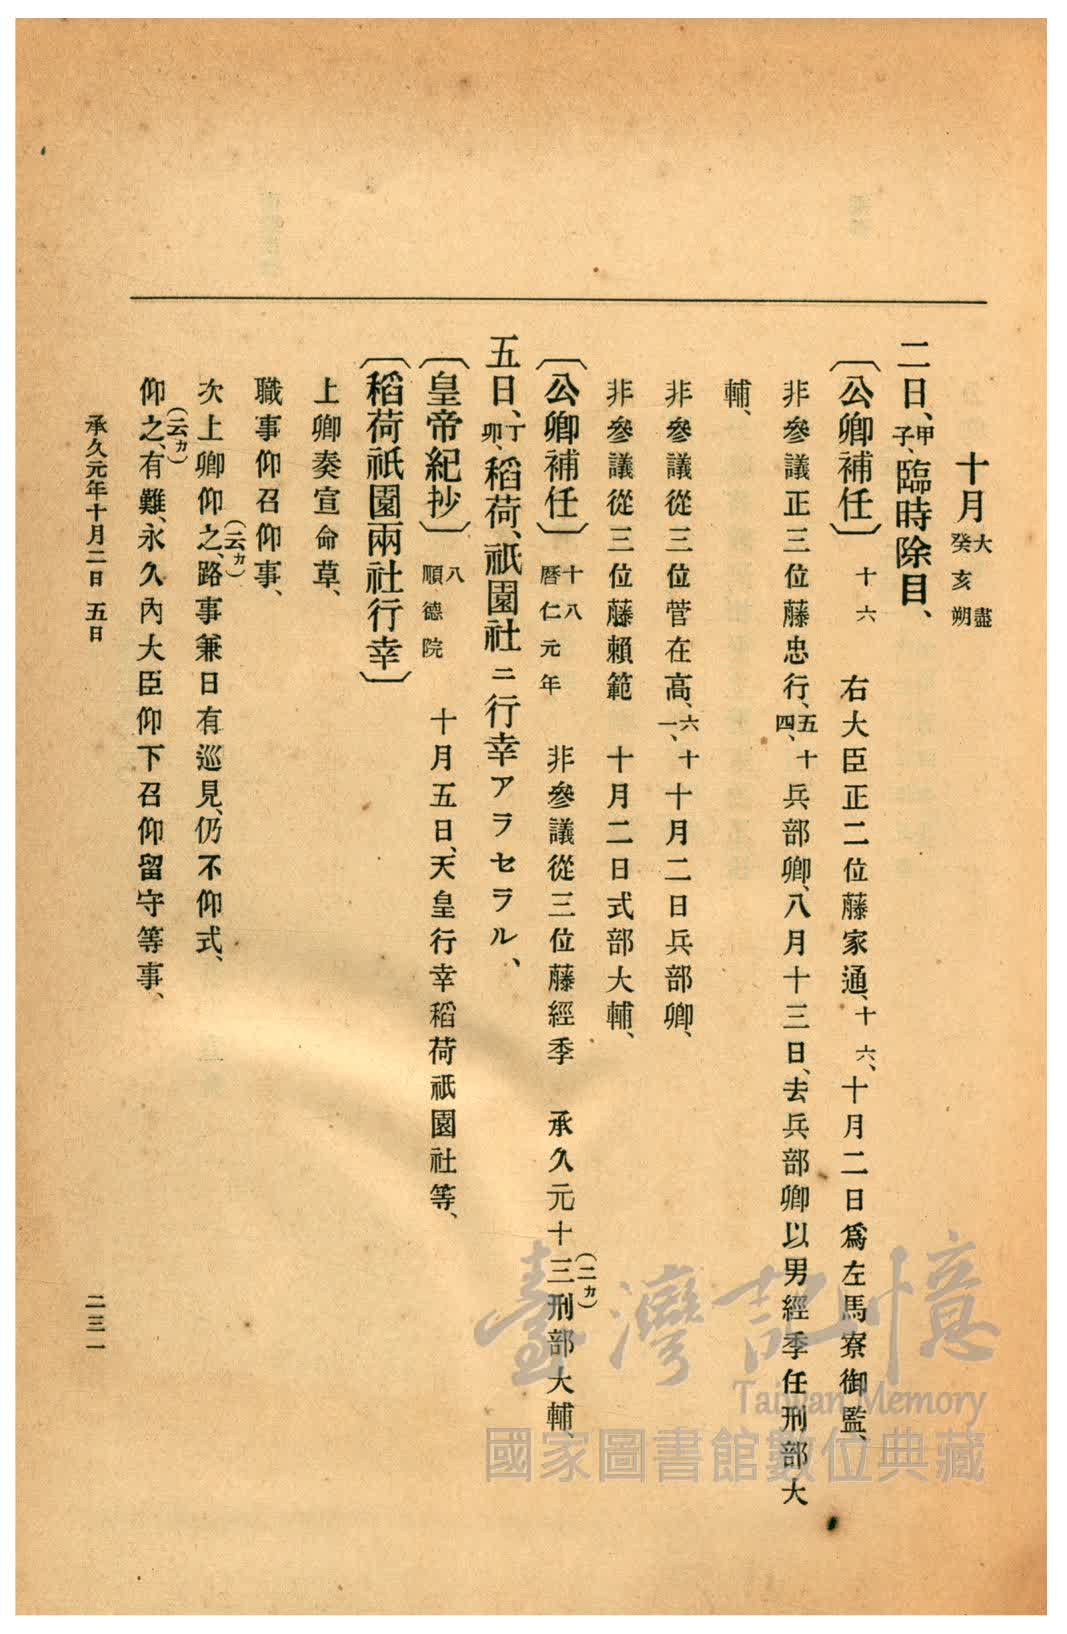 十月大盡癸亥朔
二日、甲子、臨時除目、
〔公卿補任〕十六 右大臣正二位藤家通、十六、十月二日爲左馬寮御監、
非參議正三位藤忠行、五十四、兵部卿、八月十三日、去兵部卿以男經季任刑部大
輔、
非參議從三位菅在高、六十一、十月二日兵部卿、
非參議從三位藤賴範 十月二日式部大輔、
〔公卿補任〕十八曆仁元年 非參議從三位藤經季 承久元十三(二カ)刑部大輔、
五日、丁卯、稻荷、祇園社ニ行幸アラセラル、
〔皇帝紀抄〕八順德院 十月五日、天皇行幸稻荷祇園社等、
〔稻荷祇園兩社行幸〕
上卿奏宣命草、
職事仰召仰事、
次上卿仰之、(云カ)路事兼日有巡見、仍不仰式、
仰之、(云カ)有難、永久內大臣仰下召仰留守等事、
承久元年十月二日 五日
二三一
臺灣記憶
Taiwan Memory
國家圖書館數位典藏